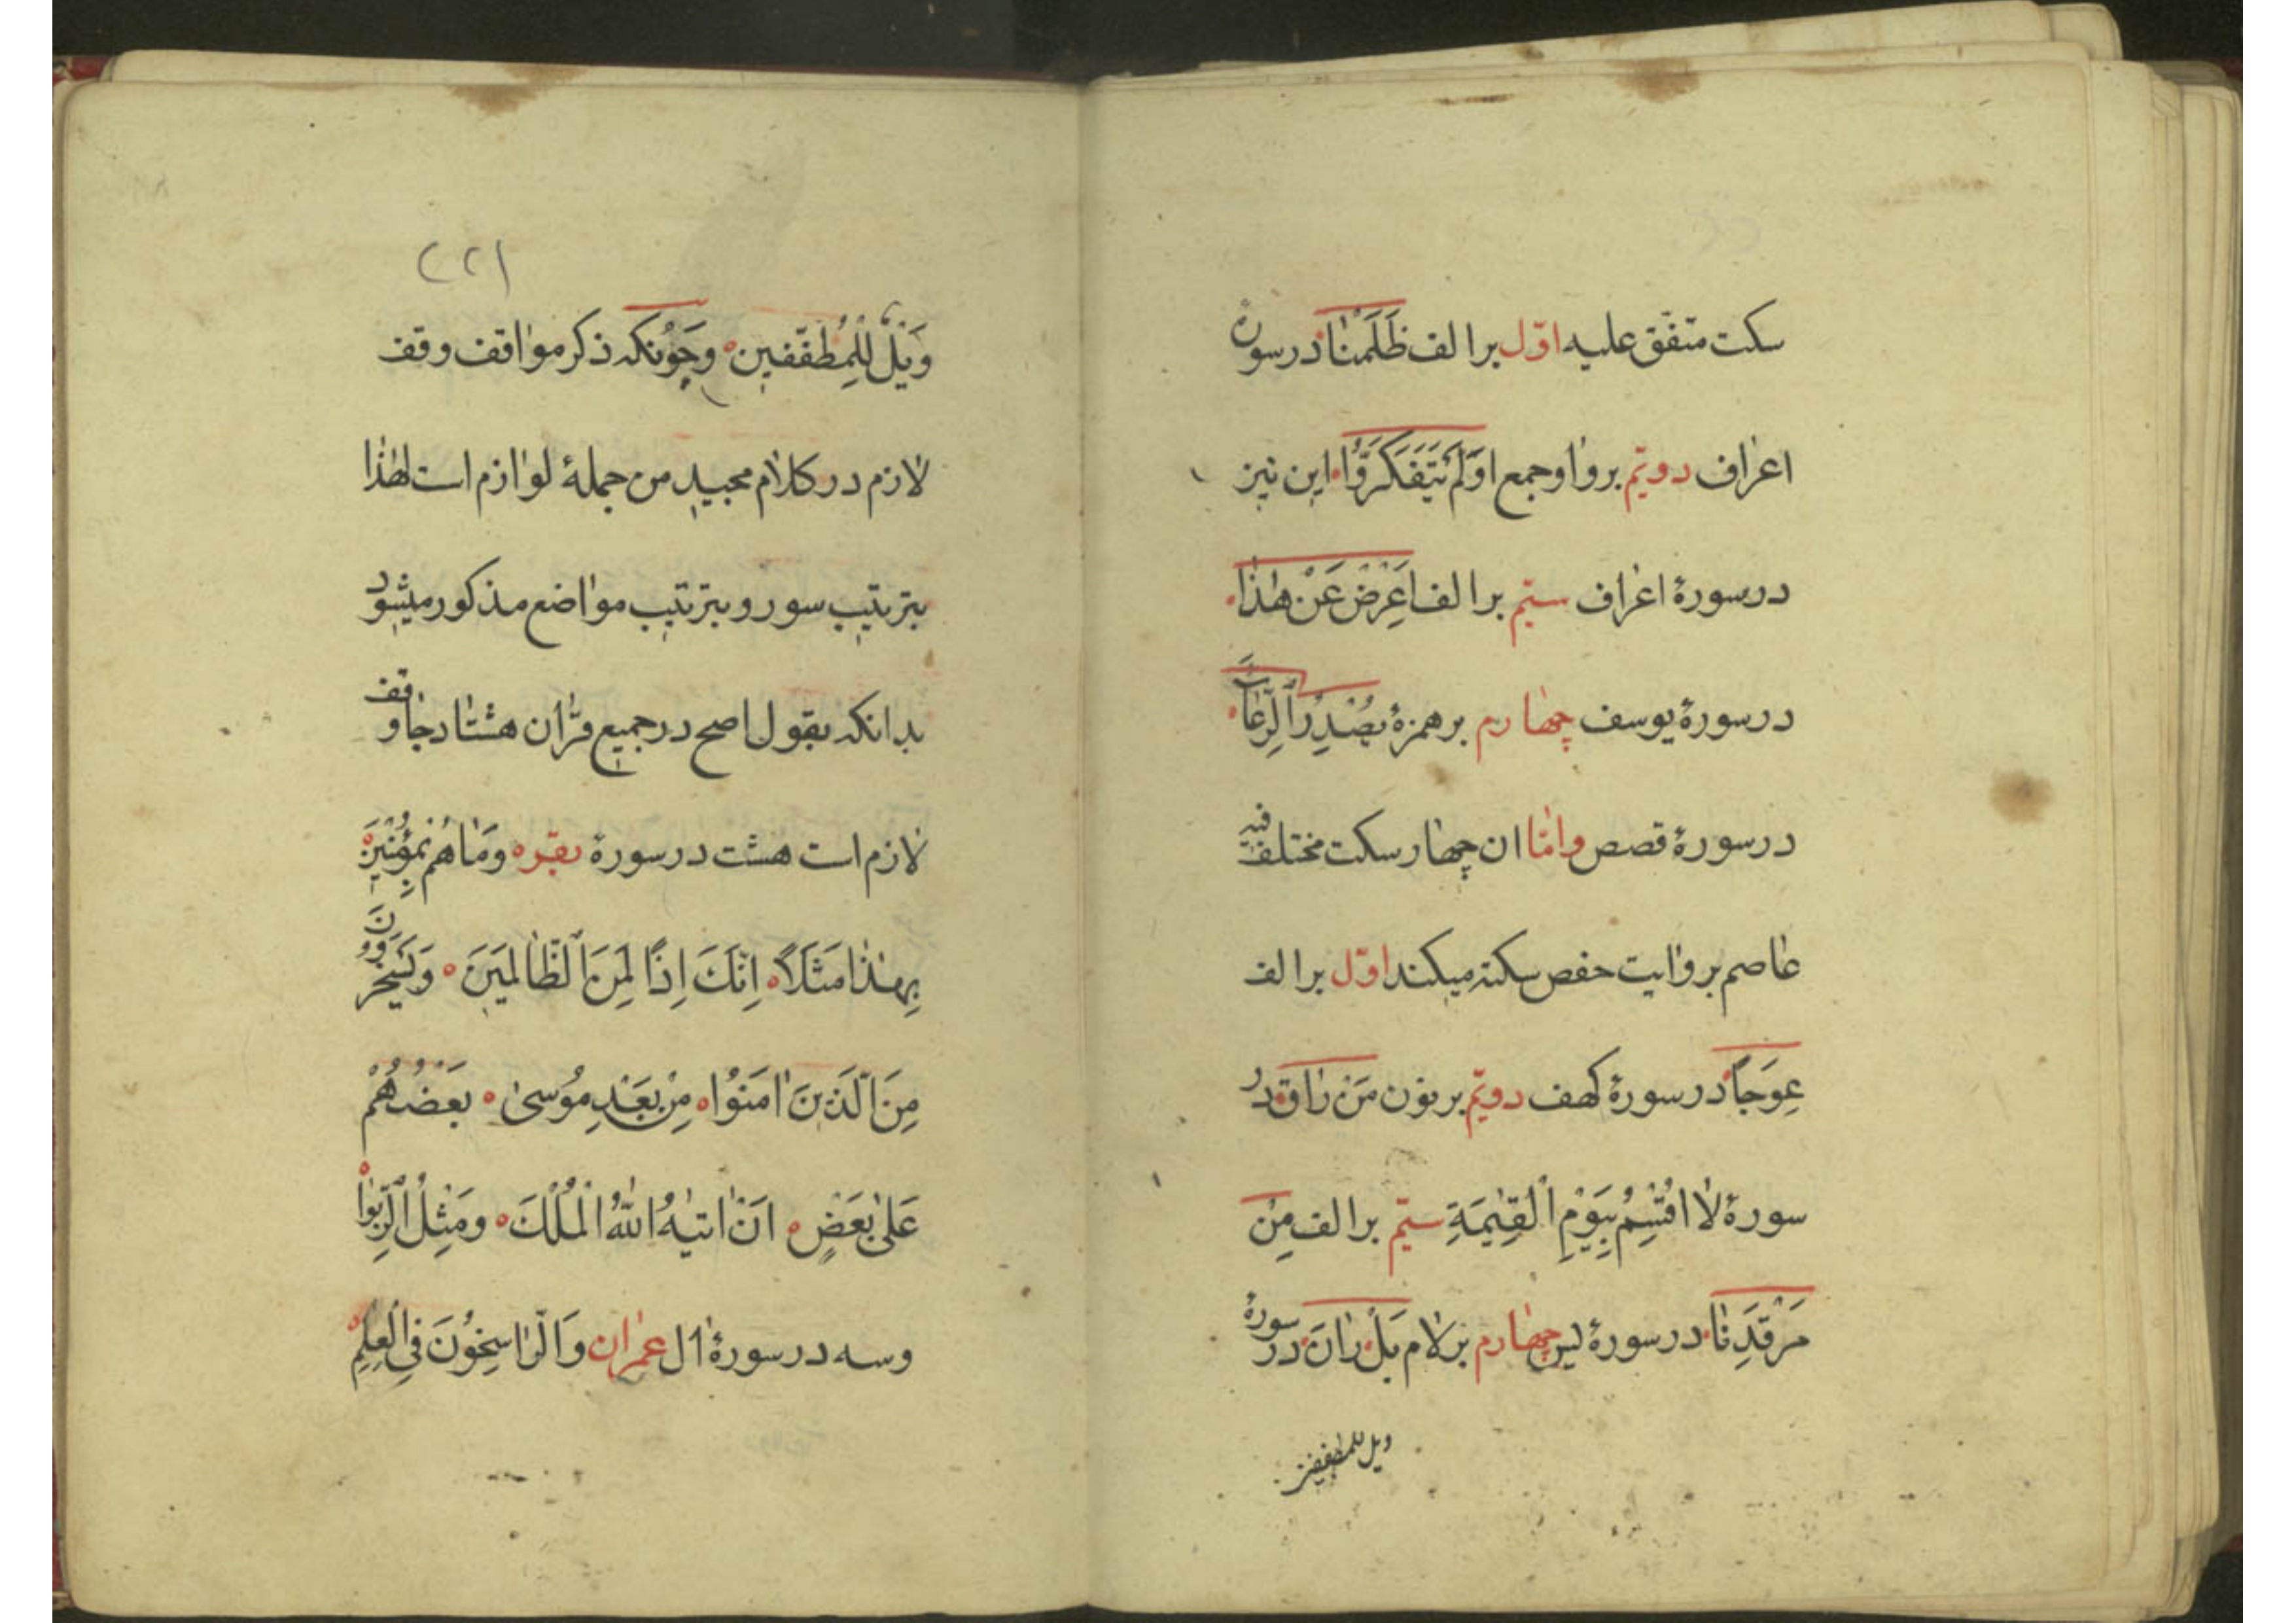 سکت متفق علیه اوّل برالف ظَلَمْنَا در سورهٔ
اعراف دویّم بر واو جمع اَوَلَمْ یَتَفَکَّرُوْا این نیز
در سورۀ اعراف سیّم برالف اَعْرِضْ عَنْ هٰذَا
در سورۀ یوسف چهارم بر همزۀ یُصْدِرَ الرِّعَآءُ
در سورۀ قصص و امّا ان چهار سکت مختلف فیه
عاصم بروایت حفص سکته میکند اوّل برالف
عِوَجًا در سورۀ کهف دویّم بر نون مَنْ رَاقٍ در
سورۀ لَا اُقْسِمُ بِیَوْمِ الْقِیٰمَةِ سیّم برالف مِنْ
مَرْقَدِنَا در سورۀ یس چهارم بر لام بَلْ رَانَ در سورۀ
ویل للمطففین
(۲۲)
وَیْلٌ لِلْمُطَفِّفِیْنَ و چونکه ذکر مواقف وقف
لازم در کلام مجید من جملۀ لوازم است لهٰذا
بترتیب سور و بترتیب مواضع مذکور میشود
بدانکه بقول اصح در جمیع قرآن هشتاد جا وقف
لازم است هشت در سورۀ بقره وَمَا هُمْ بِمُؤْمِنِیْنَ
بِهٰذَا مَثَلًا اِنَّکَ اِذًا لَمِنَ الظَّالِمِیْنَ وَیَسْخَرُوْنَ
مِنَ الَّذِیْنَ اٰمَنُوْا مِنْ بَعْدِ مُوْسٰی بَعْضُهُمْ
عَلٰی بَعْضٍ اَنْ اٰتٰیهُ اللّٰهُ الْمُلْکَ وَمِثْلُ الرِّبٰوا
و سه در سورۀ اٰل عمران وَالرَّاسِخُوْنَ فِی الْعِلْمِ